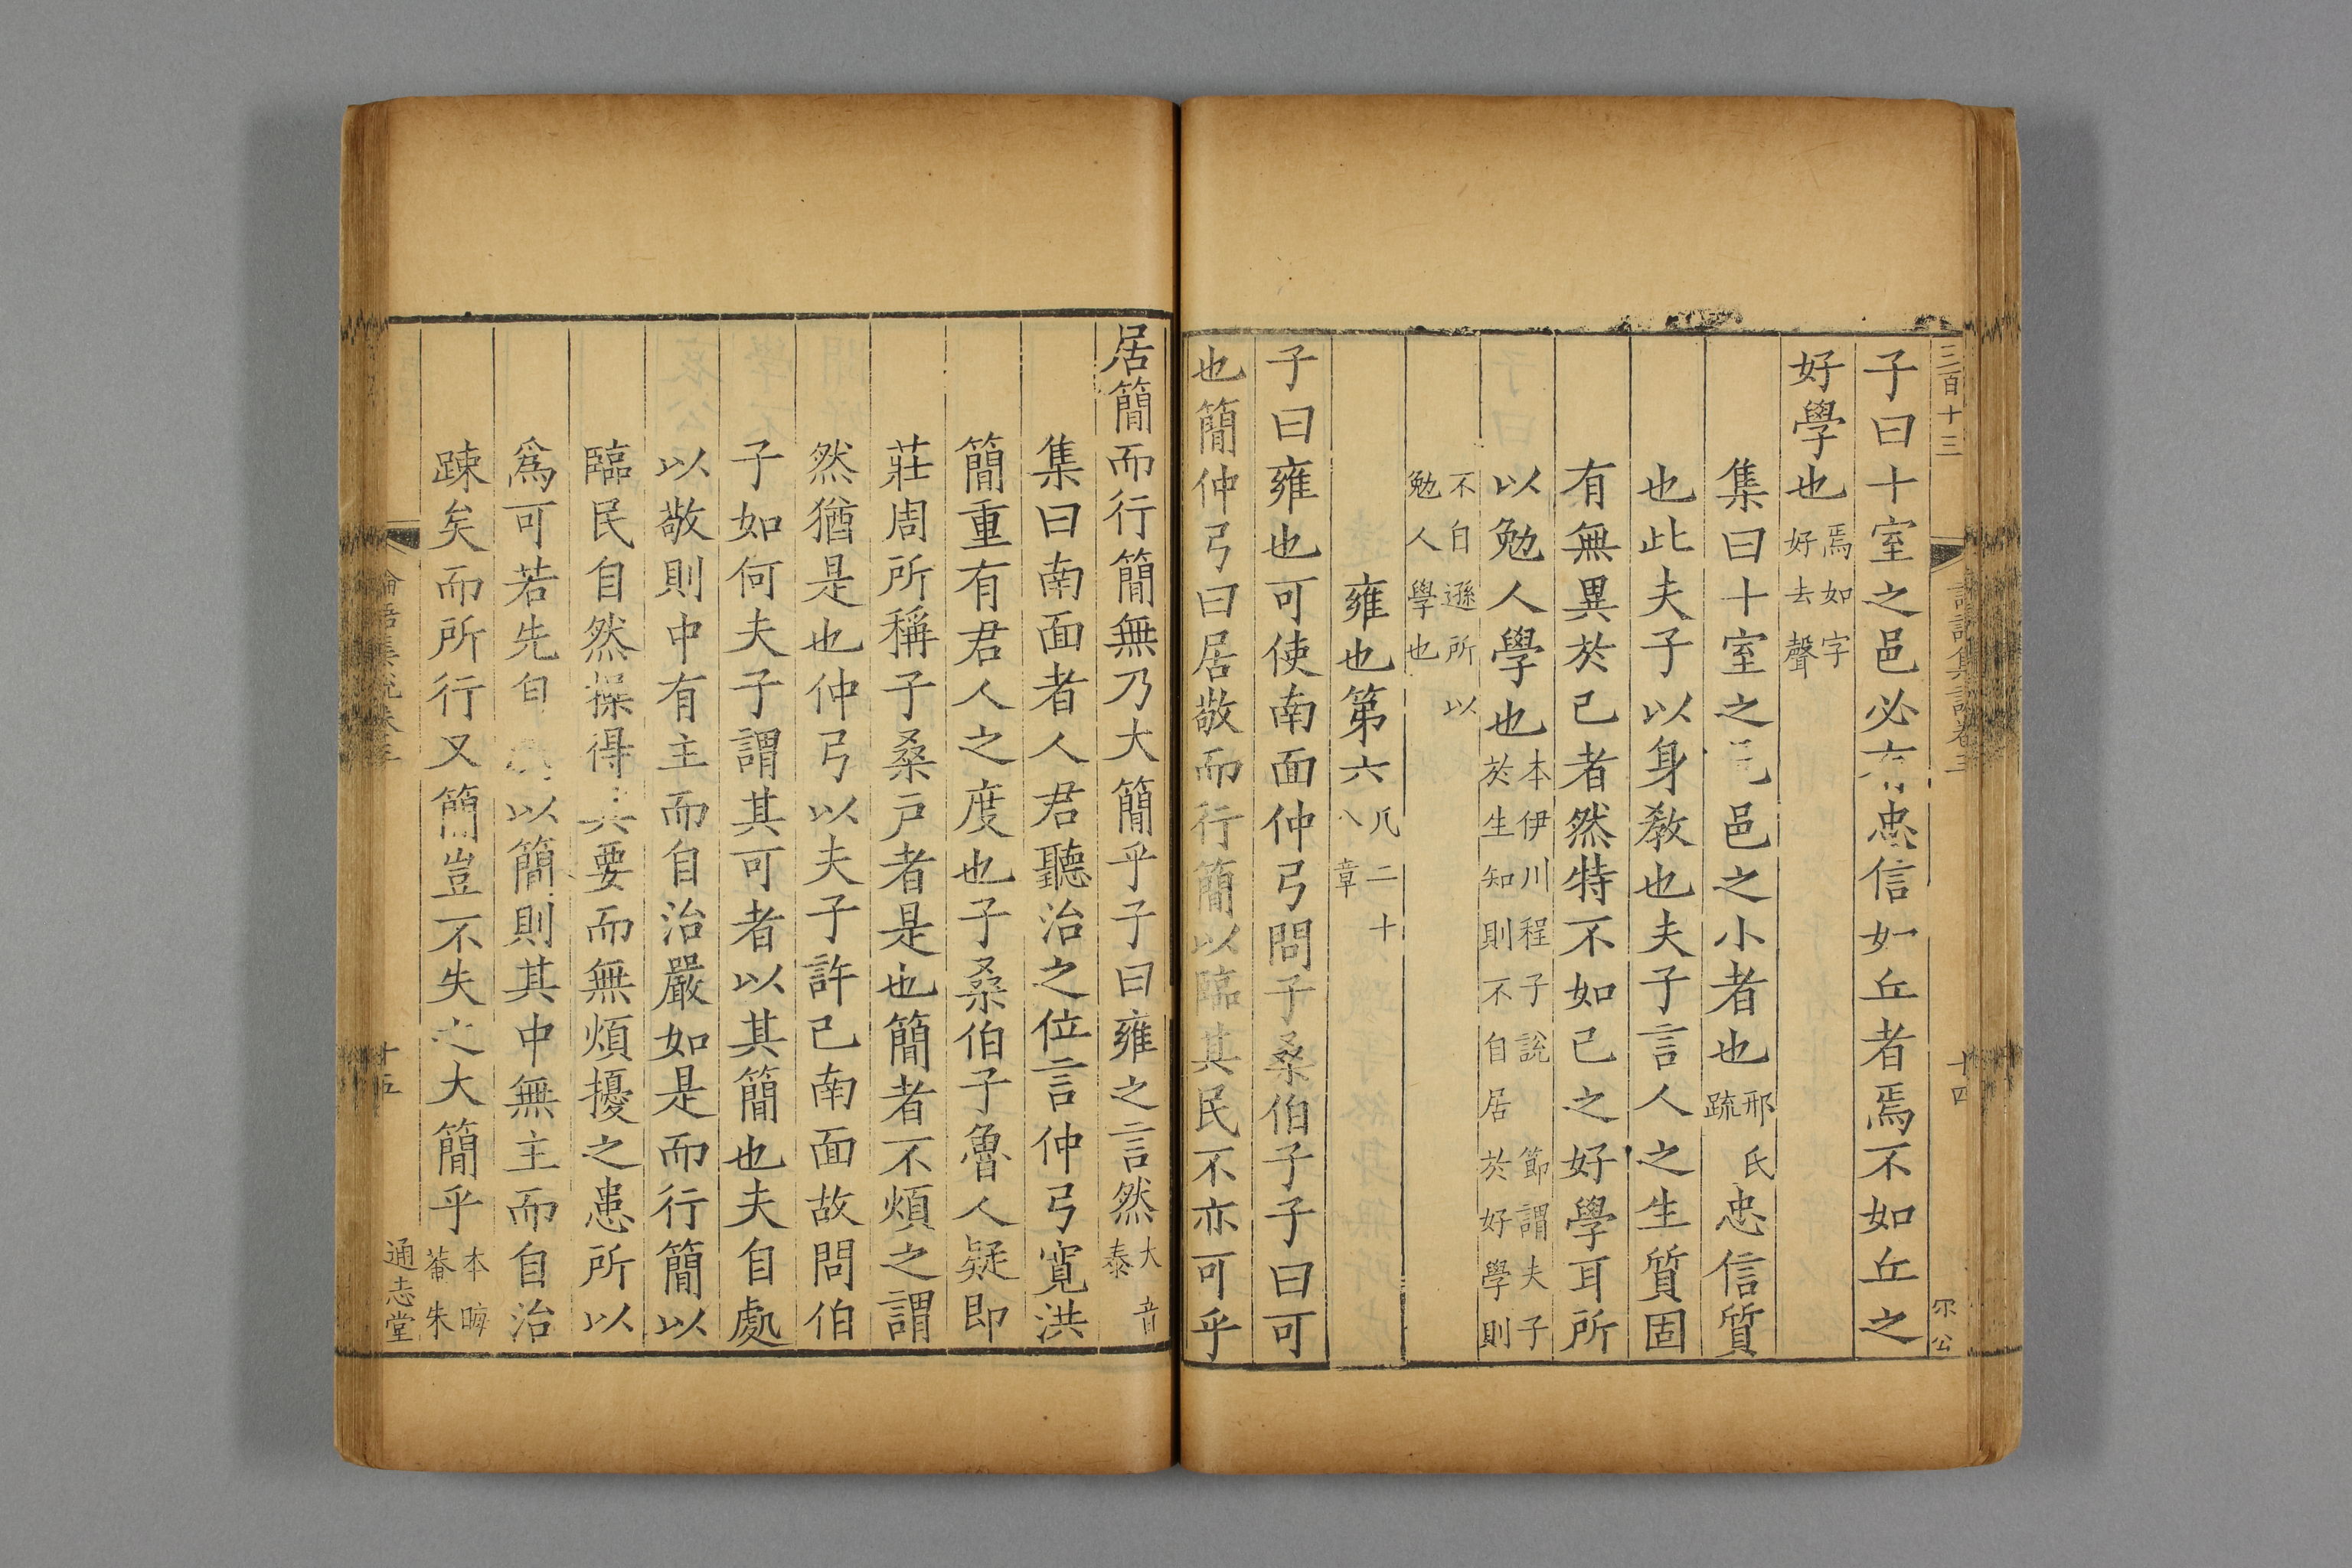 三百十三
子曰十室之邑必有忠信如丘者焉不如丘之
好學也焉如字好去聲
集曰十室之邑邑之小者也邢氏疏忠信質
也此夫子以身教也夫子言人之生質固
有無異於己者然特不如己之好學耳所
以勉人學也本伊川程子說 節謂夫子於生知則不自居於好學則
不自遜所以勉人學也
雍也第六凡二十八章
子曰雍也可使南面仲弓問子桑伯子子曰可
也簡仲弓曰居敬而行簡以臨其民不亦可乎
十四
居簡而行簡無乃大簡乎子曰雍之言然大音泰
集曰南面者人君聽治之位言仲弓寬洪
簡重有君人之度也子桑伯子魯人疑即
莊周所稱子桑戶者是也簡者不煩之謂
然猶是也仲弓以夫子許己南面故問伯
子如何夫子謂其可者以其簡也夫自處
以敬則中有主而自治嚴如是而行簡以
臨民自然操得其要而無煩擾之患所以
為可若先自以簡則其中無主而自治
踈矣而所行又簡豈不失之大簡乎本晦菴朱
論語集說卷三
十五
通志堂